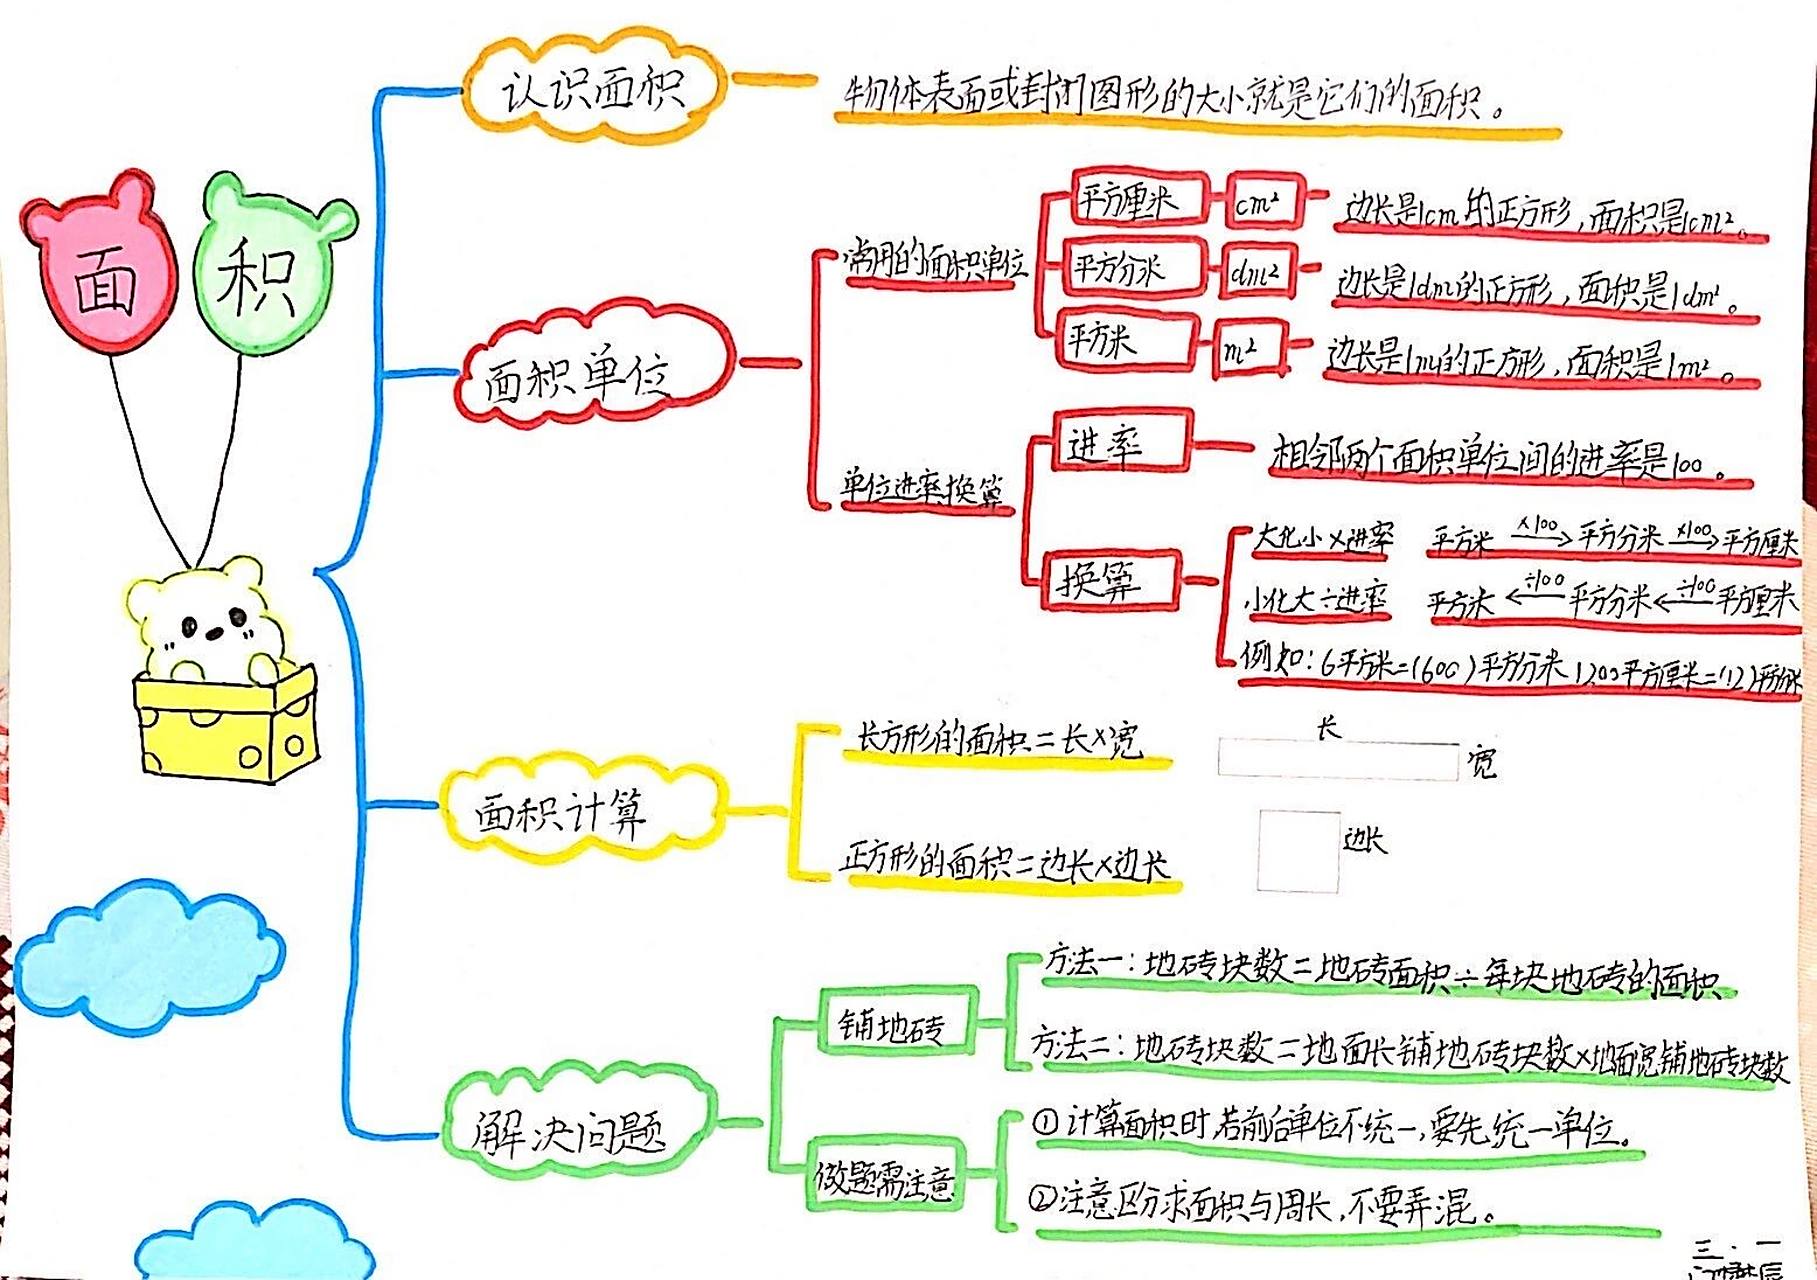 面积
认识面积
物体表面或封闭图形的大小就是它们的面积。
面积单位
常用的面积单位
平方厘米 cm² 边长是1cm的正方形,面积是1cm²。
平方分米 dm² 边长是1dm的正方形,面积是1dm²。
平方米 m² 边长是1m的正方形,面积是1m²。
单位进率换算
进率 相邻两个面积单位间的进率是100。
换算
大化小×进率 平方米 ×100→ 平方分米 ×100→ 平方厘米
小化大÷进率 平方米 ←÷100 平方分米 ←÷100 平方厘米
例如:6平方米=(600)平方分米 1200平方厘米=(12)平方分米
面积计算
长方形的面积=长×宽
长
宽
正方形的面积=边长×边长
边长
解决问题
铺地砖
方法一:地砖块数=地砖面积÷每块地砖的面积
方法二:地砖块数=地面长铺地砖块数×地面宽铺地砖块数
做题需注意
①计算面积时,若前后单位不统一,要先统一单位。
②注意区分求面积与周长,不要弄混。
三.一